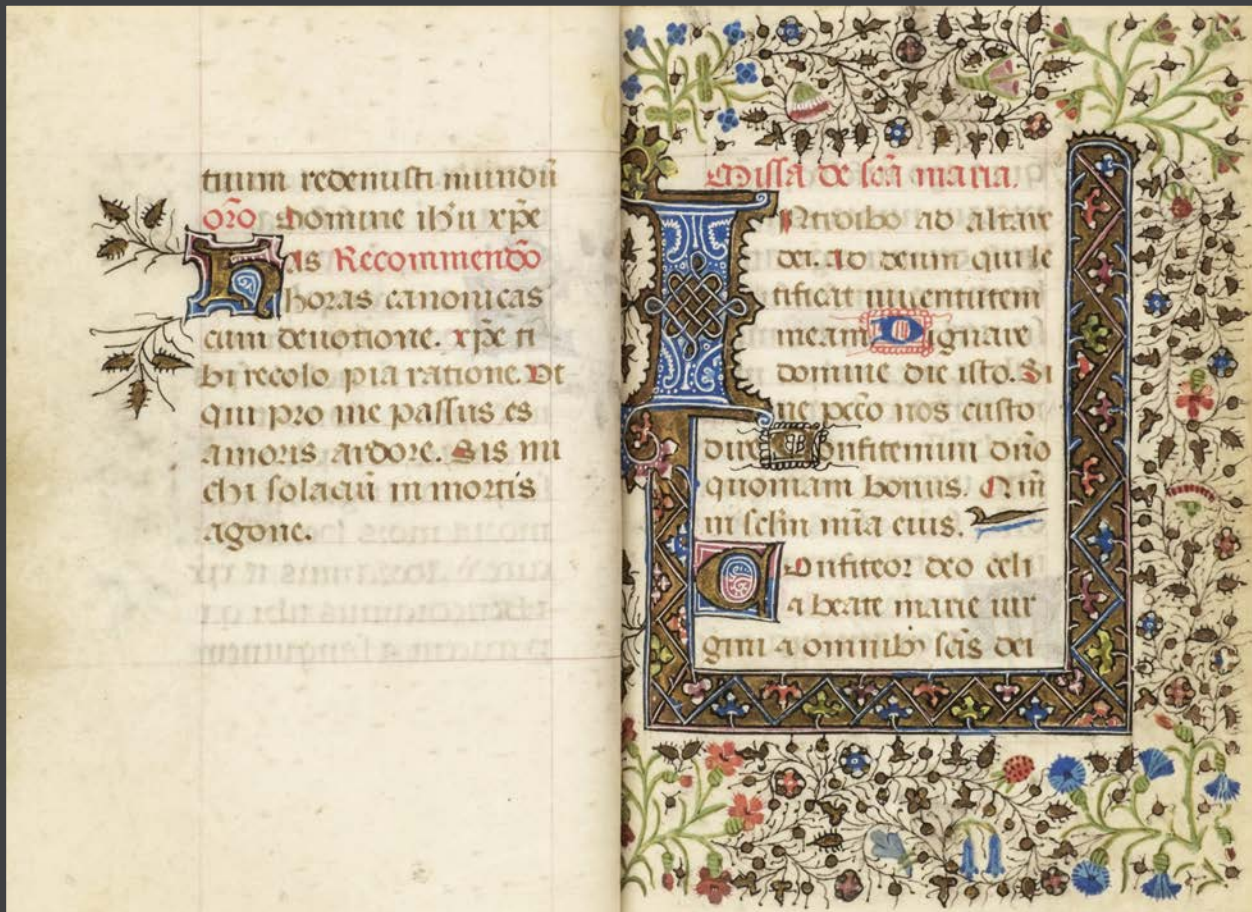 tuum redemisti mundū
or̄o Domine ih'u xp̄e
Has Recommendō
horas canonicas
cum deuotione. xp̄e ti
bi recolo pia ratione. Vt
qui pro me passus es
amoris ardore. Sis mi
chi solaciū in mortis
agone.
Missa de sc̄a maria.
INtroibo ad altare
dei. ad deum qui le
tificat iuuentutem
meam Dignare
domine die isto. Si
ne pc̄c̄o nos custo
dire Confitemini dn̄o
quoniam bonus. Qm̄
in sclm̄ mīa eius.
Confiteor deo celi
⁊ beate marie uir
gini ⁊ omnib⁊ sc̄is dei